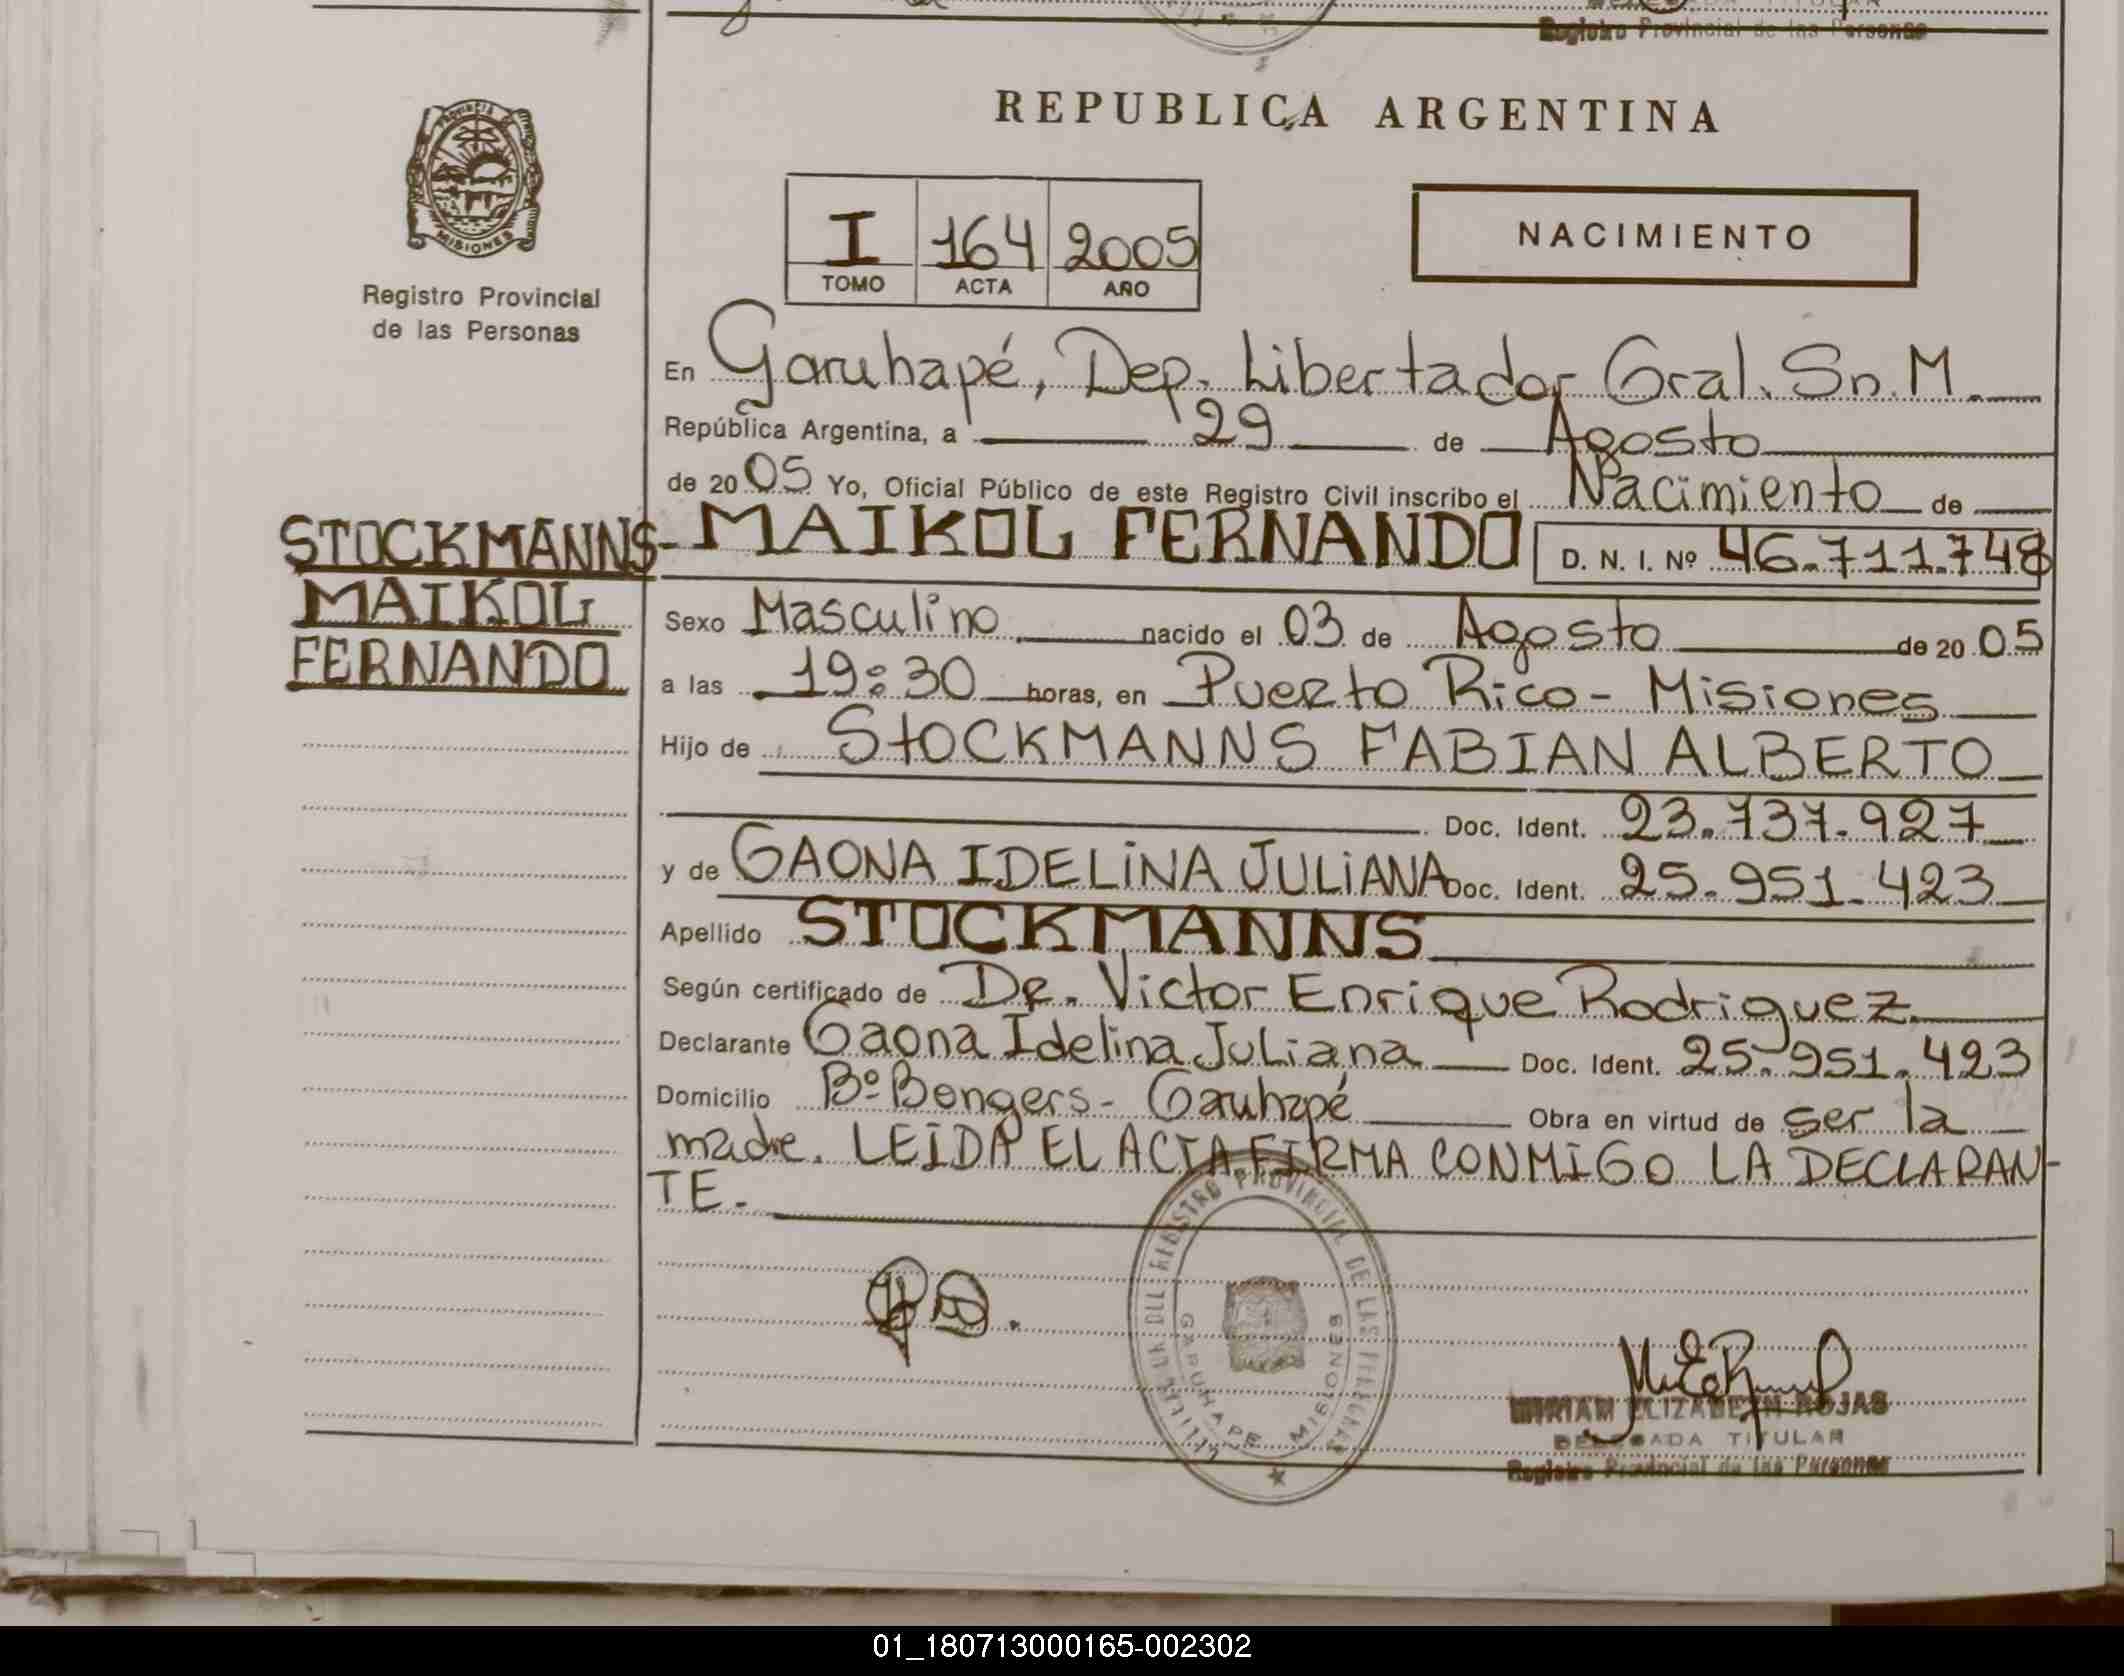 Registro Provincial de las Personas
REPUBLICA ARGENTINA
PROVINCIA DE
MISIONES
Registro Provincial
de las Personas
I 164 2005
TOMO ACTA AÑO
NACIMIENTO
En Garuhapé, Dep. Libertador Gral. Sn. M.
República Argentina, a 29 de Agosto
de 2005 Yo, Oficial Público de este Registro Civil inscribo el Nacimiento de
STOCKMANNS-
MAIKOL
FERNANDO
MAIKOL FERNANDO D. N. I. Nº 46.711.748
Sexo Masculino nacido el 03 de Agosto de 2005
a las 19:30 horas, en Puerto Rico - Misiones
Hijo de STOCKMANNS FABIAN ALBERTO
Doc. Ident. 23.737.927
y de GAONA IDELINA JULIANA Doc. Ident. 25.951.423
Apellido STOCKMANNS
Según certificado de Dr. Victor Enrique Rodriguez.
Declarante Gaona Idelina Juliana Doc. Ident. 25.951.423
Domicilio Bº Bongers - Garuhapé Obra en virtud de ser la
madre. LEIDA EL ACTA FIRMA CONMIGO LA DECLARAN-
TE.-
REGISTRO PROVINCIAL DE LAS PERSONAS
GARUHAPE MISIONES
MIRIAM ELIZABETH ROJAS
DELEGADA TITULAR
Registro Provincial de las Personas
01_180713000165-002302